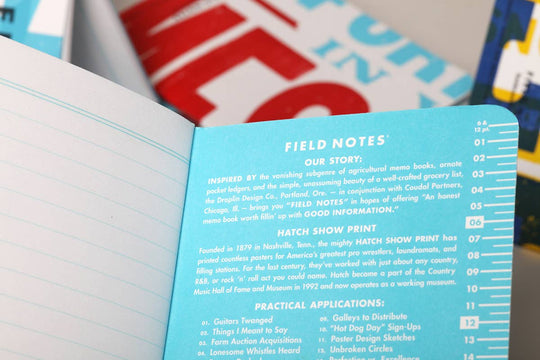 FIELD NOTES
OUR STORY:
INSPIRED BY the vanishing subgenre of agricultural memo books, ornate
pocket ledgers, and the simple, unassuming beauty of a well-crafted grocery list,
the Draplin Design Co., Portland, Ore. — in conjunction with Coudal Partners,
Chicago, Ill. — brings you "FIELD NOTES" in hopes of offering "An honest
memo book worth fillin' up with GOOD INFORMATION."
HATCH SHOW PRINT
Founded in 1879 in Nashville, Tenn., the mighty HATCH SHOW PRINT has
printed countless posters for America's greatest pro wrestlers, laundromats, and
filling stations. For the last century, they've worked with just about any country,
R&B, or rock 'n' roll act you could name. Hatch became a part of the Country
Music Hall of Fame and Museum in 1992 and now operates as a working museum.
PRACTICAL APPLICATIONS:
01. Guitars Twanged
02. Things I Meant to Say
03. Farm Auction Acquisitions
04. Lonesome Whistles Heard
09. Galleys to Distribute
10. "Hot Dog Day" Sign-Ups
11. Poster Design Sketches
13. Unbroken Circles
14. Perfection vs. Excellence
6 &
12 pt.
01
02
03
04
05
06
07
08
09
10
11
12
13
IN